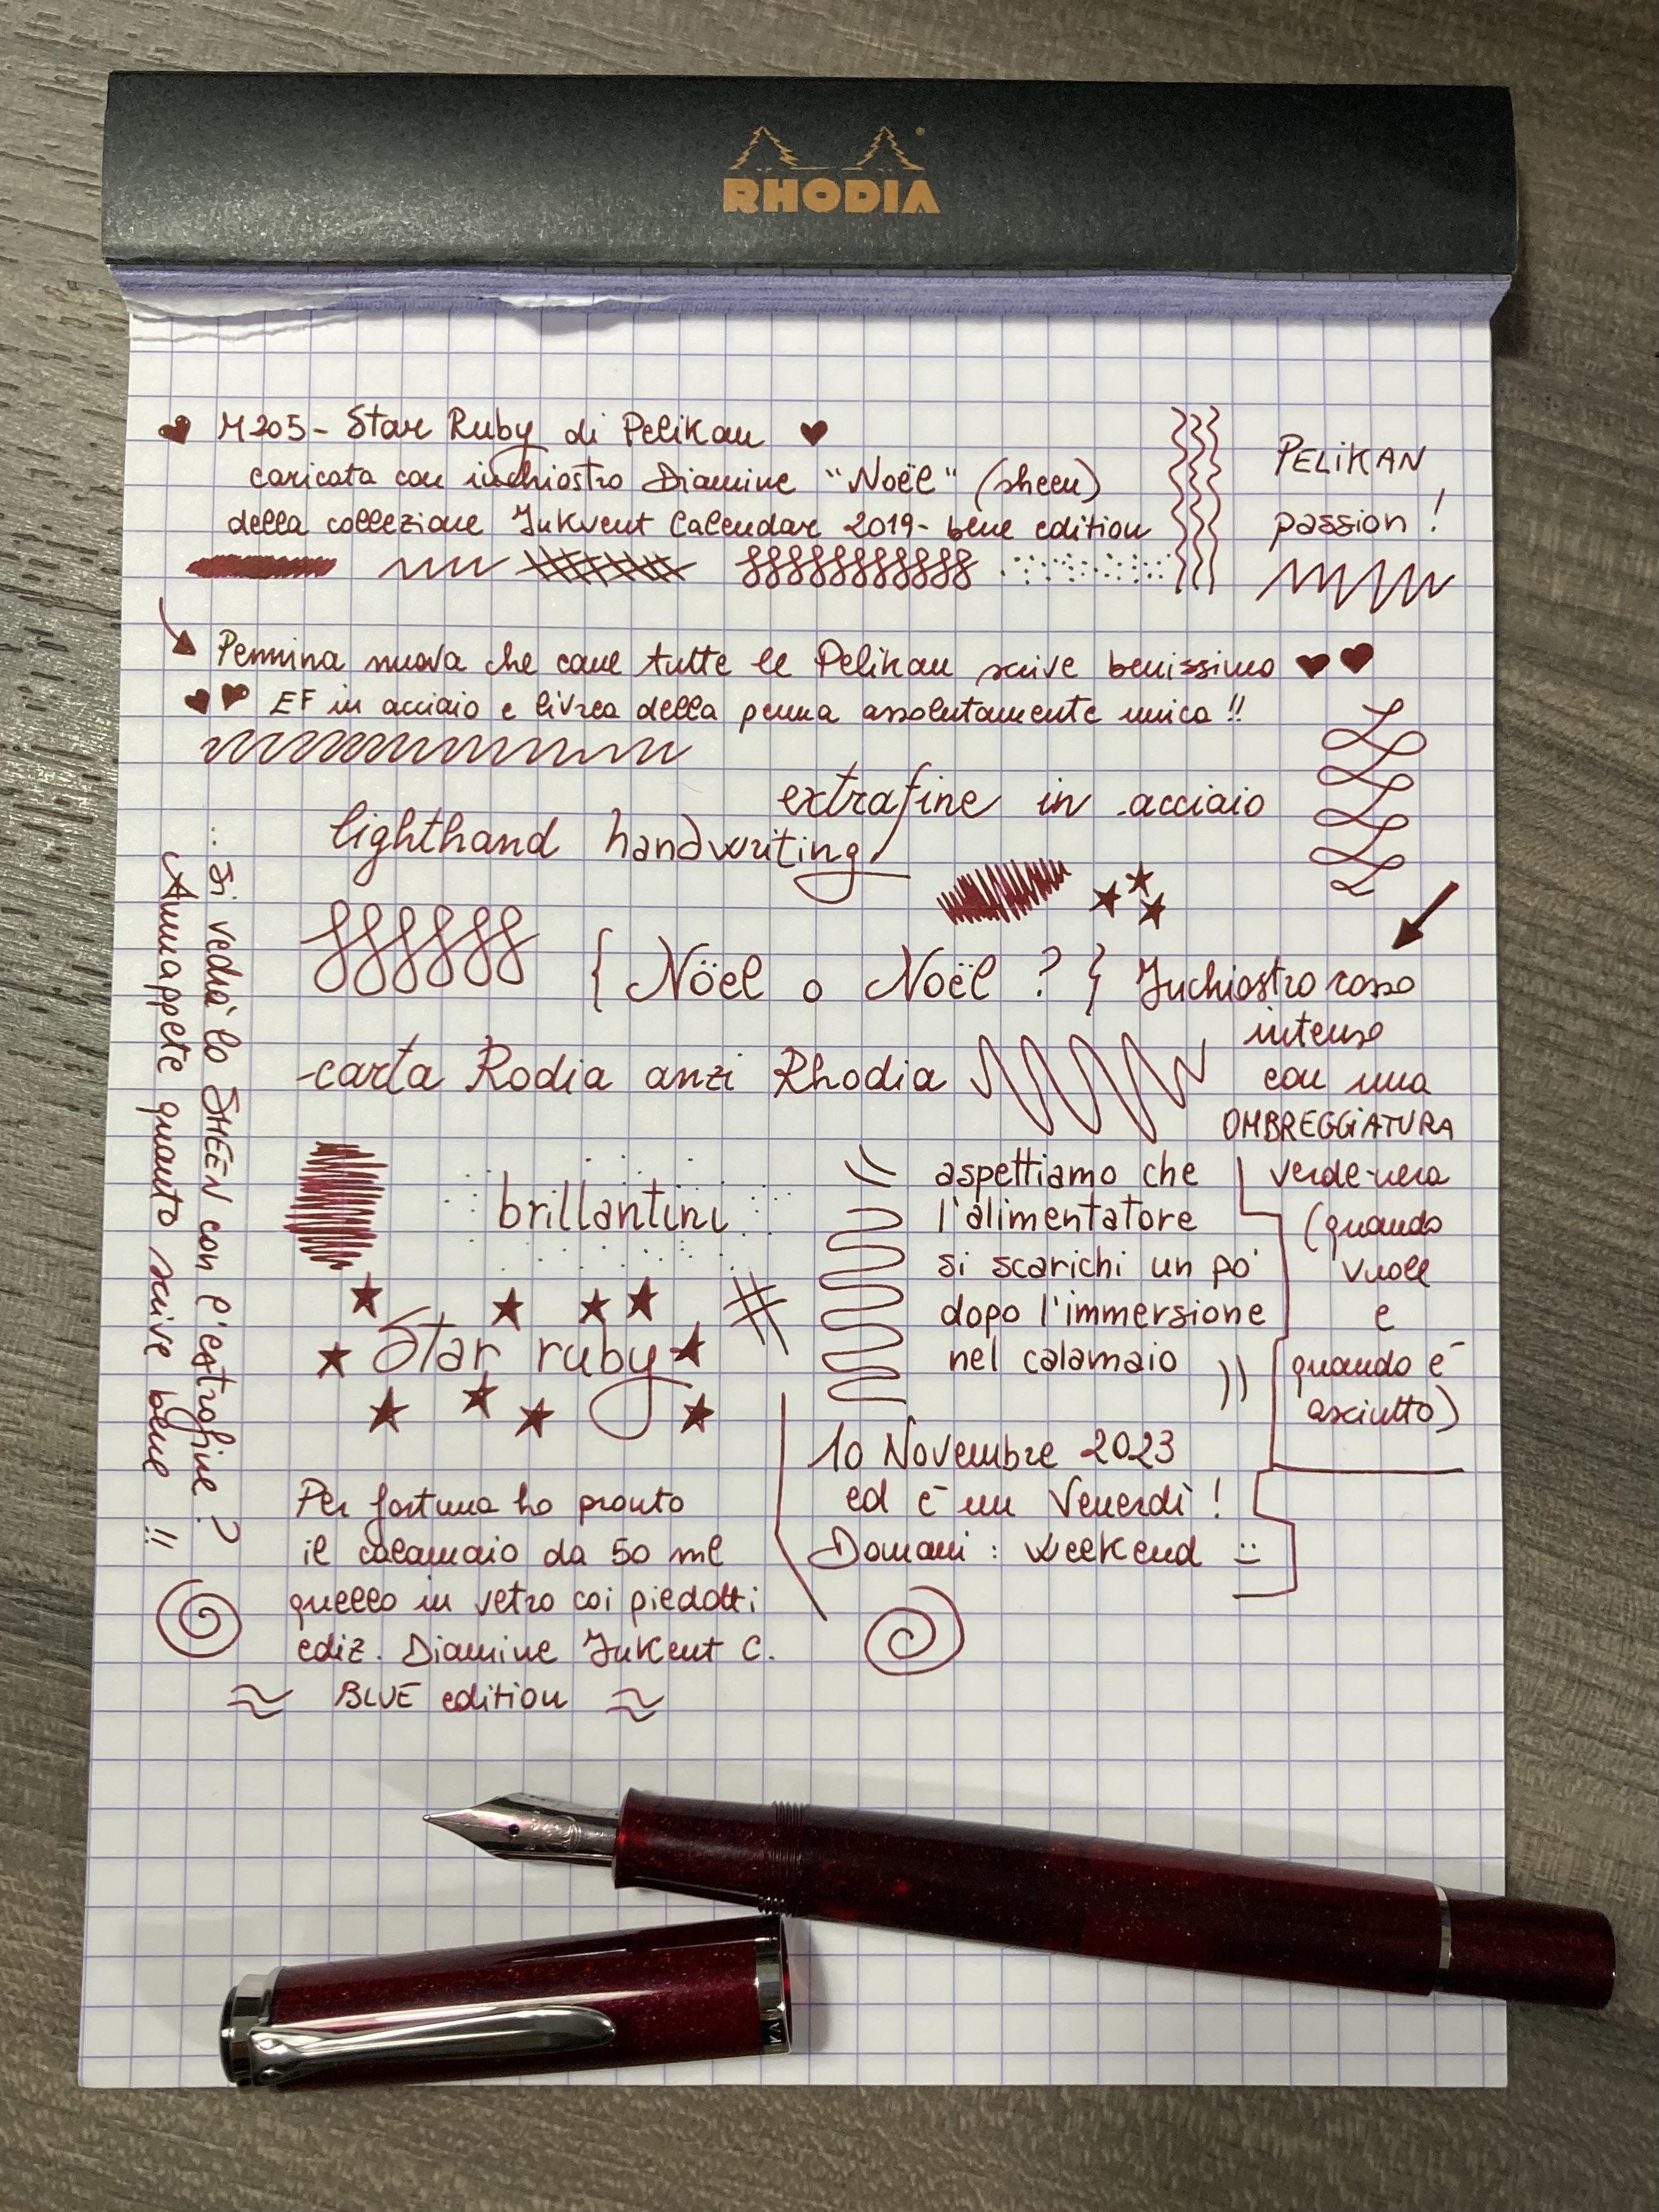 RHODIA
M205- Star Ruby di Pelikan
caricata con inchiostro Diamine "Noël" (sheen)
della collezione Inkvent Calendar 2019- blue edition
PELIKAN
passion!
Pennina nuova che come tutte le Pelikan scrive benissimo
EF in acciaio e livrea della penna assolutamente unica!!
extrafine in acciaio
lighthand handwriting
{ Nöel o Noël ? }
Inchiostro rosso
intenso
con una
OMBREGGIATURA
verde-nera
(quando
vuole
e
quando è
asciutto)
-carta Rodia anzi Rhodia
brillantini
Star ruby
(( aspettiamo che
l'alimentatore
si scarichi un po'
dopo l'immersione
nel calamaio ))
10 Novembre 2023
ed è un Venerdì!
Domani: weekend :)
Per fortuna ho pronto
il calamaio da 50 ml
quello in vetro coi piedotti
ediz. Diamine Inkent C.
≈ BLUE edition ≈
... si vedrà lo SHEEN con l'estrafine?
Ammappete quanto scrive bene !!